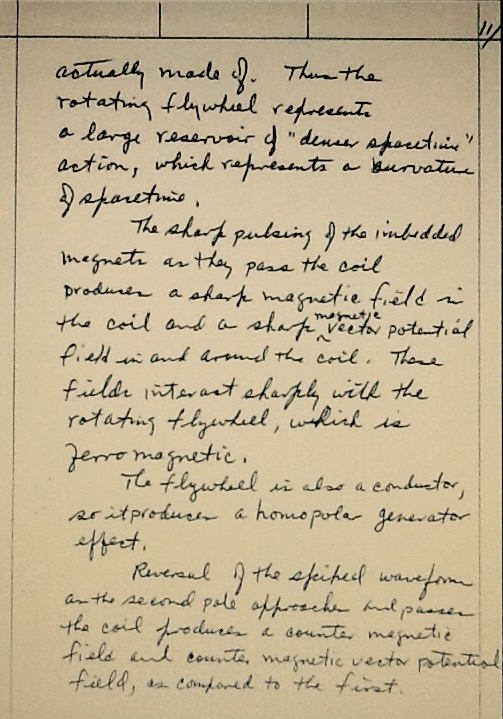 11
actually made of. Thus the
rotating flywheel represents
a large reservoir of "denser spacetime"
action, which represents a curvature
of spacetime.
The sharp pulsing of the imbedded
magnets as they pass the coil
produces a sharp magnetic field in
the coil and a sharp magnetic vector potential
field in and around the coil. These
fields interact sharply with the
rotating flywheel, which is
ferromagnetic.
The flywheel is also a conductor,
so it produces a homopolar generator
effect.
Reversal of the spiped waveform
as the second pole approaches and passes
the coil produces a counter magnetic
field and counter magnetic vector potential
field, as compared to the first.